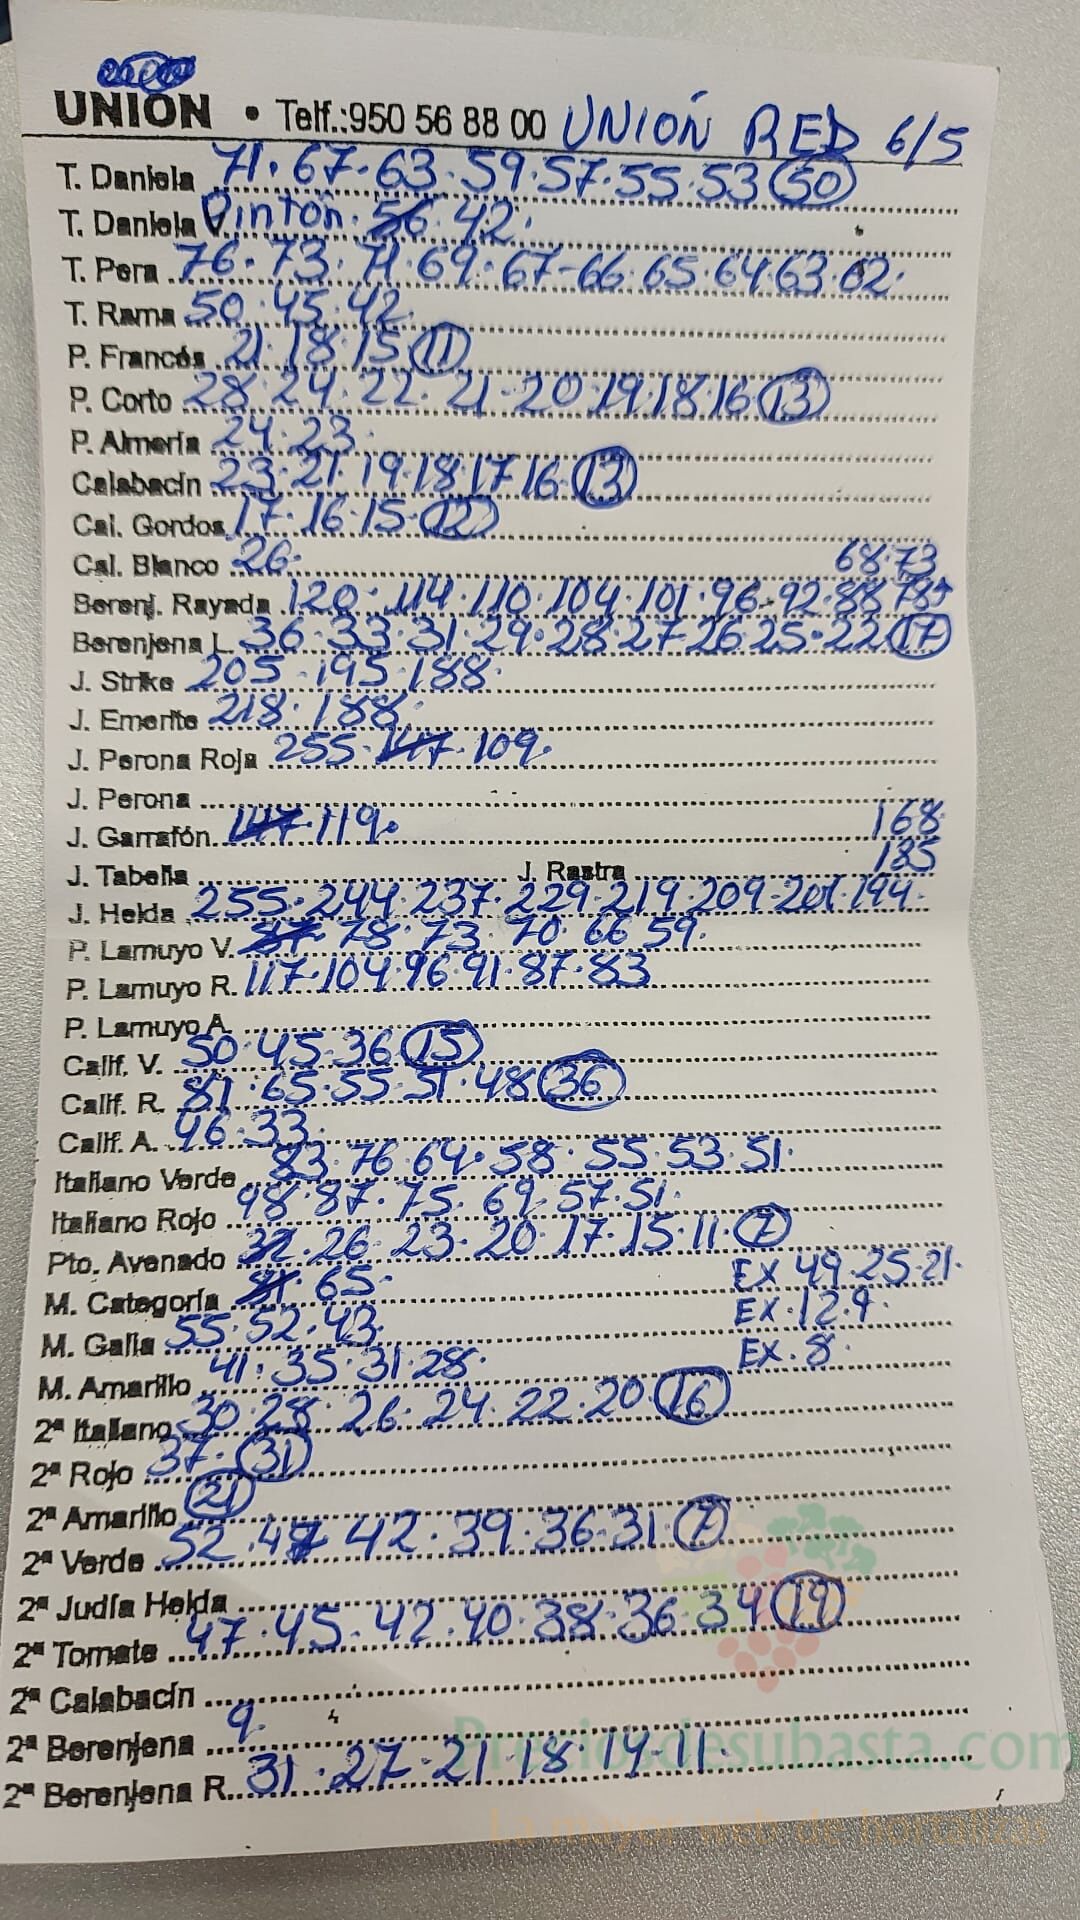 UNION • Telf.:950 56 88 00 UNIÓN RED 6/5
T. Daniela 71·67·63·59·57·55·53 50
T. Daniela Pintón·56·42·
T. Pera 76·73·71·69·67-66·65·64·63·62·
T. Rama 50·45·42
P. Francés 21·18·15 11
P. Corto 28·24·22·21·20·19·18·16 13
P. Almería 24·23·
Calabacín 23·21·19·18·17·16· 13
Cal. Gordos 17·16·15· 12
Cal. Blanco 26· 68·73
Berenj. Rayada 120·114·110·104·101·96·92·88 78
Berenjena L. 36·33·31·29·28·27·26·25·22 17
J. Strike 205·195·188·
J. Emerite 218·188·
J. Perona Roja 255·147·109·
J. Perona
J. Garrafón 147·119· 168
J. Tabella J. Rastra 185
J. Helda 255·244·237·229·219·209·201·194·
P. Lamuyo V. 87·78·73·70·66·59·
P. Lamuyo R. 117·104·96·91·87·83
P. Lamuyo A.
Calif. V. 50·45·36 15
Calif. R. 81·65·55·51·48 36
Calif. A. 46·33·
Italiano Verde 83·76·64·58·55·53·51·
Italiano Rojo 98·87·75·69·57·51·
Pto. Avenado 32·26·23·20·17·15·11· 7
M. Categoría 81·65· EX 49·25·21·
M. Galia 55·52·43· EX·12·9·
M. Amarillo 41·35·31·28· EX·8·
2ª Italiano 30·28·26·24·22·20 16
2ª Rojo 37· 31
2ª Amarillo 21
2ª Verde 52·47·42·39·36·31· 7
2ª Judía Helda
2ª Tomate 47·45·42·40·38·36·34 19
2ª Calabacín
2ª Berenjena 9·
2ª Berenjena R. 31·27·21·18·14·11·
Preciosdesubasta.com
La mayor web de hortalizas